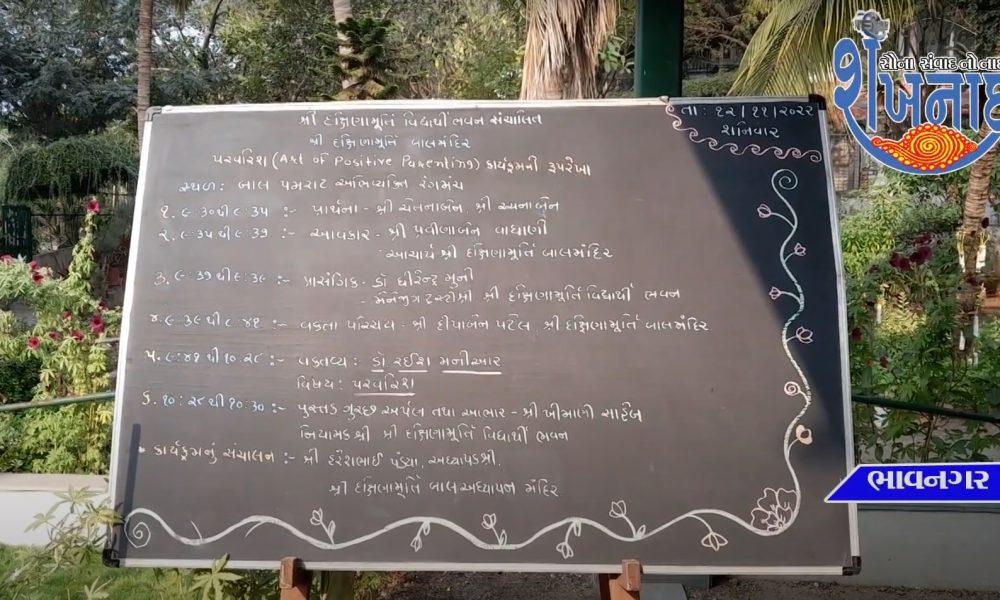 શ્રી દક્ષિણામૂર્તિ વિદ્યાર્થી ભવન સંચાલિત
શ્રી દક્ષિણામૂર્તિ બાલમંદિર
પરવરિશ (Art of Positive Parenting) કાર્યક્રમની રૂપરેખા
સ્થળ: બાલ પમરાટ અભિવ્યક્તિ રંગમંચ
તા: ૧૨/૧૧/૨૦૨૨
શનિવાર
૧. ૯:૩૦થી૯:૩૫ :- પ્રાર્થના - શ્રી ચેતનાબેન, શ્રી રચનાબેન
૨. ૯:૩૫થી૯:૩૭ :- આવકાર - શ્રી પ્રવીણાબેન વાઘાણી
- આચાર્ય શ્રી દક્ષિણામૂર્તિ બાલમંદિર
૩. ૯:૩૭થી૯:૩૯ :- પ્રાસંગિક - ડૉ ધીરેન્દ્ર મુની
- મેનેજીંગ ટ્રસ્ટીશ્રી શ્રી દક્ષિણામૂર્તિ વિદ્યાર્થી ભવન
૪. ૯:૩૯થી૯:૪૧ :- વક્તા પરિચય - શ્રી દીપાબેન પટેલ, શ્રી દક્ષિણામૂર્તિ બાલમંદિર
૫. ૯:૪૧થી૧૦:૨૮ :- વક્તવ્ય: ડૉ રઈશ મનીઆર
વિષય: પરવરિશ
૬. ૧૦:૨૮થી૧૦:૩૦ :- પુસ્તક ગુચ્છ અર્પણ તથા આભાર - શ્રી ખીમાણી સાહેબ
નિયામકશ્રી શ્રી દક્ષિણામૂર્તિ વિદ્યાર્થી ભવન
• કાર્યક્રમનું સંચાલન :- શ્રી હરેશભાઈ પંડ્યા, અધ્યાપકશ્રી.
શ્રી દક્ષિણામૂર્તિ બાલ અધ્યાપન મંદિર
સૌના સંવાદનો નાદ
શંખનાદ
ભાવનગર